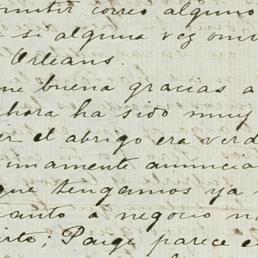 omitir correo alguno
si alguna vez omi
Orleans.
ne buena gracias a
ahora ha sido muy
er el abrigo era verd
imamente anuncia
que tengamos ya
cuanto a negocio no
ierto, Paige parece e